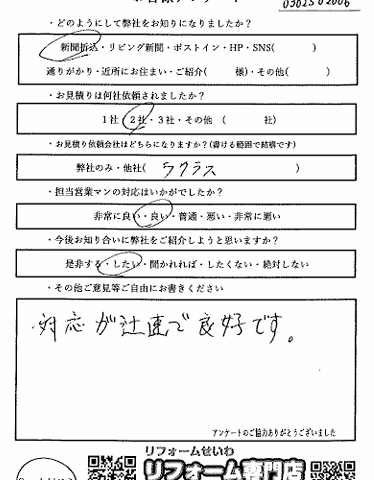 ・どのようにして弊社をお知りになりましたか?
新聞折込・リビング新聞・ポストイン・HP・SNS(　　　)
通りがかり・近所にお住まい・ご紹介(　　　様)・その他(　　　)
・お見積りは何社依頼されましたか?
1社・2社・3社・その他 (　　　社)
・お見積り依頼会社はどちらになりますか?(書ける範囲で結構です)
弊社のみ・他社(　ラクラス　)
・担当営業マンの対応はいかがでしたか?
非常に良い・良い・普通・悪い・非常に悪い
・今後お知り合いに弊社をご紹介しようと思いますか?
是非する・したい・聞かれれば・したくない・絶対しない
・その他ご意見等ご自由にお書きください
対応が迅速で良好です。
アンケートのご協力ありがとうございました
リフォームせいわ
リフォーム専門店